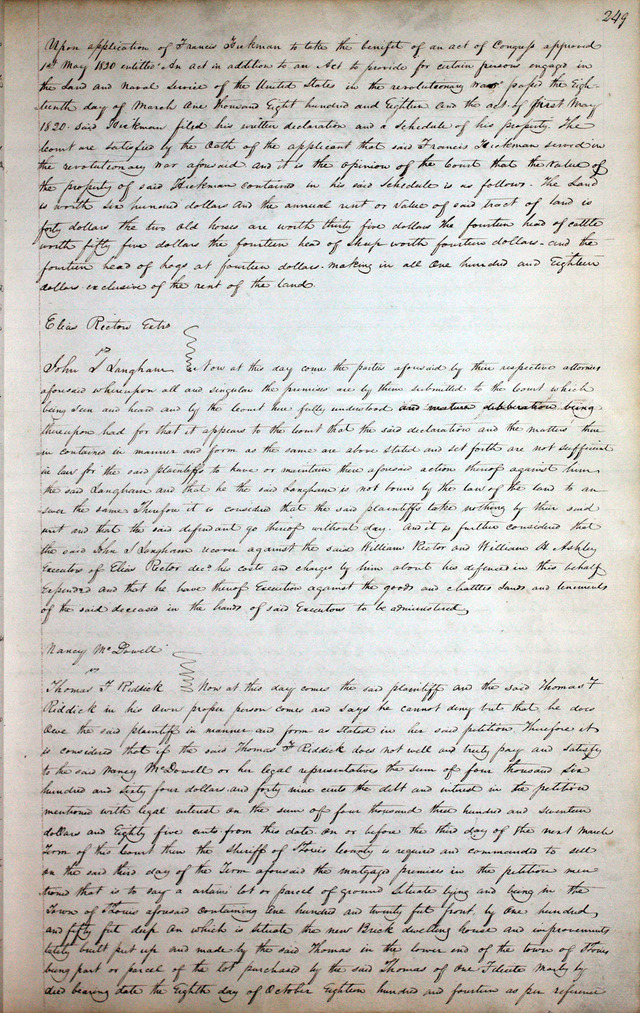 249
Upon application of Francis Hickman to take the benifit of an act of Congress approved
1st May 1820 entitled "An act in addition to an Act to provide for certain persons engaged in
the Land and Naval Service of the United States in the revolutionary war" passed the Eigh-
teenth day of March One thousand Eight hundred and Eighteen and the act of first May
1820. Said Hickman filed his written declaration and a Schedule of his property. The
Court are satisfied by the Oath of the applicant that said Francis Hickman served in
the revolutionary war aforesaid and it is the opinion of the Court that the value of
the property of said Hickman contained in his said Schedule is as follows. The Land
is worth six hundred dollars and the annual rent or value of said tract of land is
forty dollars the two old horses are worth thirty five dollars the fourteen head of cattle
worth fifty five dollars the fourteen head of sheep worth fourteen dollars - and the
fourteen head of hogs at fourteen dollars. making in all One hundred and Eighteen
dollars exclusive of the rent of the land.
Elias Rectors Extrs
vs
John S Langham Now at this day come the parties aforesaid by their respective attornies
aforesaid whereupon all and singular the premises are by them submitted to the Court which
being seen and heard and by the Court here fully understood and mature deliberation being
thereupon had for that it appears to the Court that the said declaration and the matters there
in contained in manner and form as the same are above stated and set forth are not sufficient
in law for the said plaintiffs to have or maintain their aforesaid action thereof against him
the said Langham and that he the said Langham is not bound by the law of the land to an-
swer the same. Therefore it is considered that the said plaintiffs take nothing by their said
writ and that the said defendant go thereof without day. And it is further considered that
the said John S Langham recover against the said William Rector and William H Ashley
Executors of Elias Rector decd his costs and charges by him about his defence in this behalf
Expended and that he have thereof Execution against the goods and chattles lands and tenements
of the said deceased in the hands of said Executors to be administered
Nancy McDowell
vs
Thomas F Riddick Now at this day comes the said plaintiff and the said Thomas F
Riddick in his own proper person comes and says he cannot deny but that he does
owe the said plaintiff in manner and form as stated in her said petition Therefore it
is considered that if the said Thomas F Riddick does not well and truly pay and satisfy
to he said Nancy McDowell or her legal representatives the sum of four thousand six
hundred and sixty four dollars and forty nine cents the debt and interest in the petition
mentioned with legal interest on the sum of four thousand three hundred and seventeen
dollars and Eighty five cents from this date on or before the third day of the next March
Term of this Court then the Sheriff of St Louis County is required and commanded to sell
on the said third day of the Term aforesaid the mortgaged premises in the petition men
tioned that is to say a certain lot or parcel of ground situate lying and being in the
Town of St Louis aforesaid containing one hundred and twenty feet front by one hundred
and fifty feet deep on which is situate the new Brick dwelling house and improvements
lately built put up and made by the said Thomas in the lower end of the town of St Louis
being part or parcel of the lot purchased by the said Thomas of One by
deed bearing date the Eighth day of October Eighteen hundred and fourteen as per reference